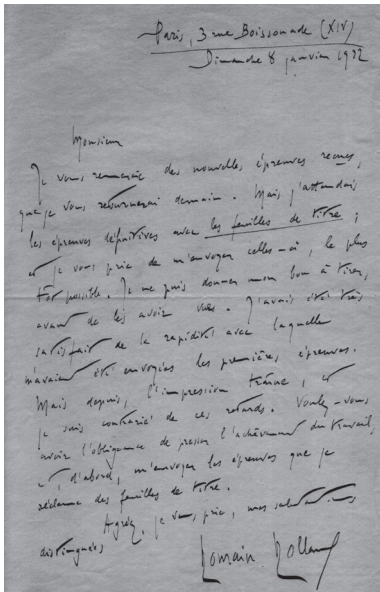 Paris, 3 rue Boissonade (XIV)
Dimanche 8 janvier 1922
Monsieur
Je vous remercie des nouvelles épreuves reçues,
que je vous retournerai demain. Mais j'attendais
les épreuves définitives avec les feuilles de titre ;
et je vous prie de m'envoyer celles-ci, le plus
tôt possible. Je ne puis donner mon bon à tirer,
avant de les avoir vues. J'avais été très
satisfait de la rapidité avec laquelle
m'avaient été envoyées les premières épreuves.
Mais depuis, l'impression traîne, et
je suis contrarié de ces retards. Voulez-vous
avoir l'obligeance de presser l'achèvement du travail,
et, d'abord, m'envoyer les épreuves que je
réclame des feuilles de titre.
Agréez, je vous prie, mes salutations
distinguées
Romain Rolland